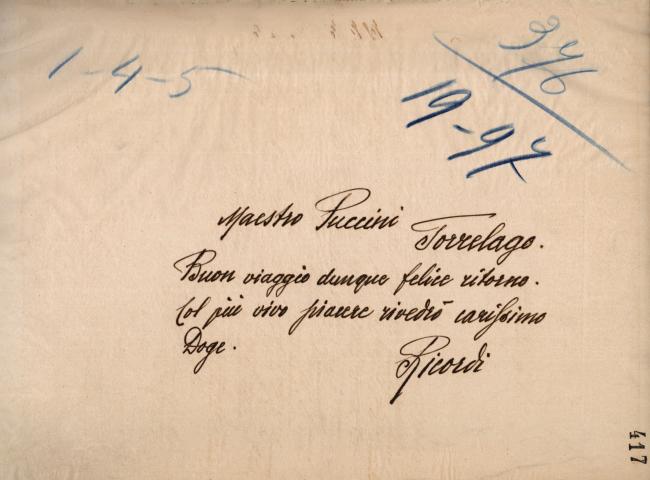 1-4-5
376
19-97
Maestro Puccini
Torrelago.
Buon viaggio dunque felice ritorno.
Col più vivo piacere rivedrò carissimo
Doge.
Ricordi
417